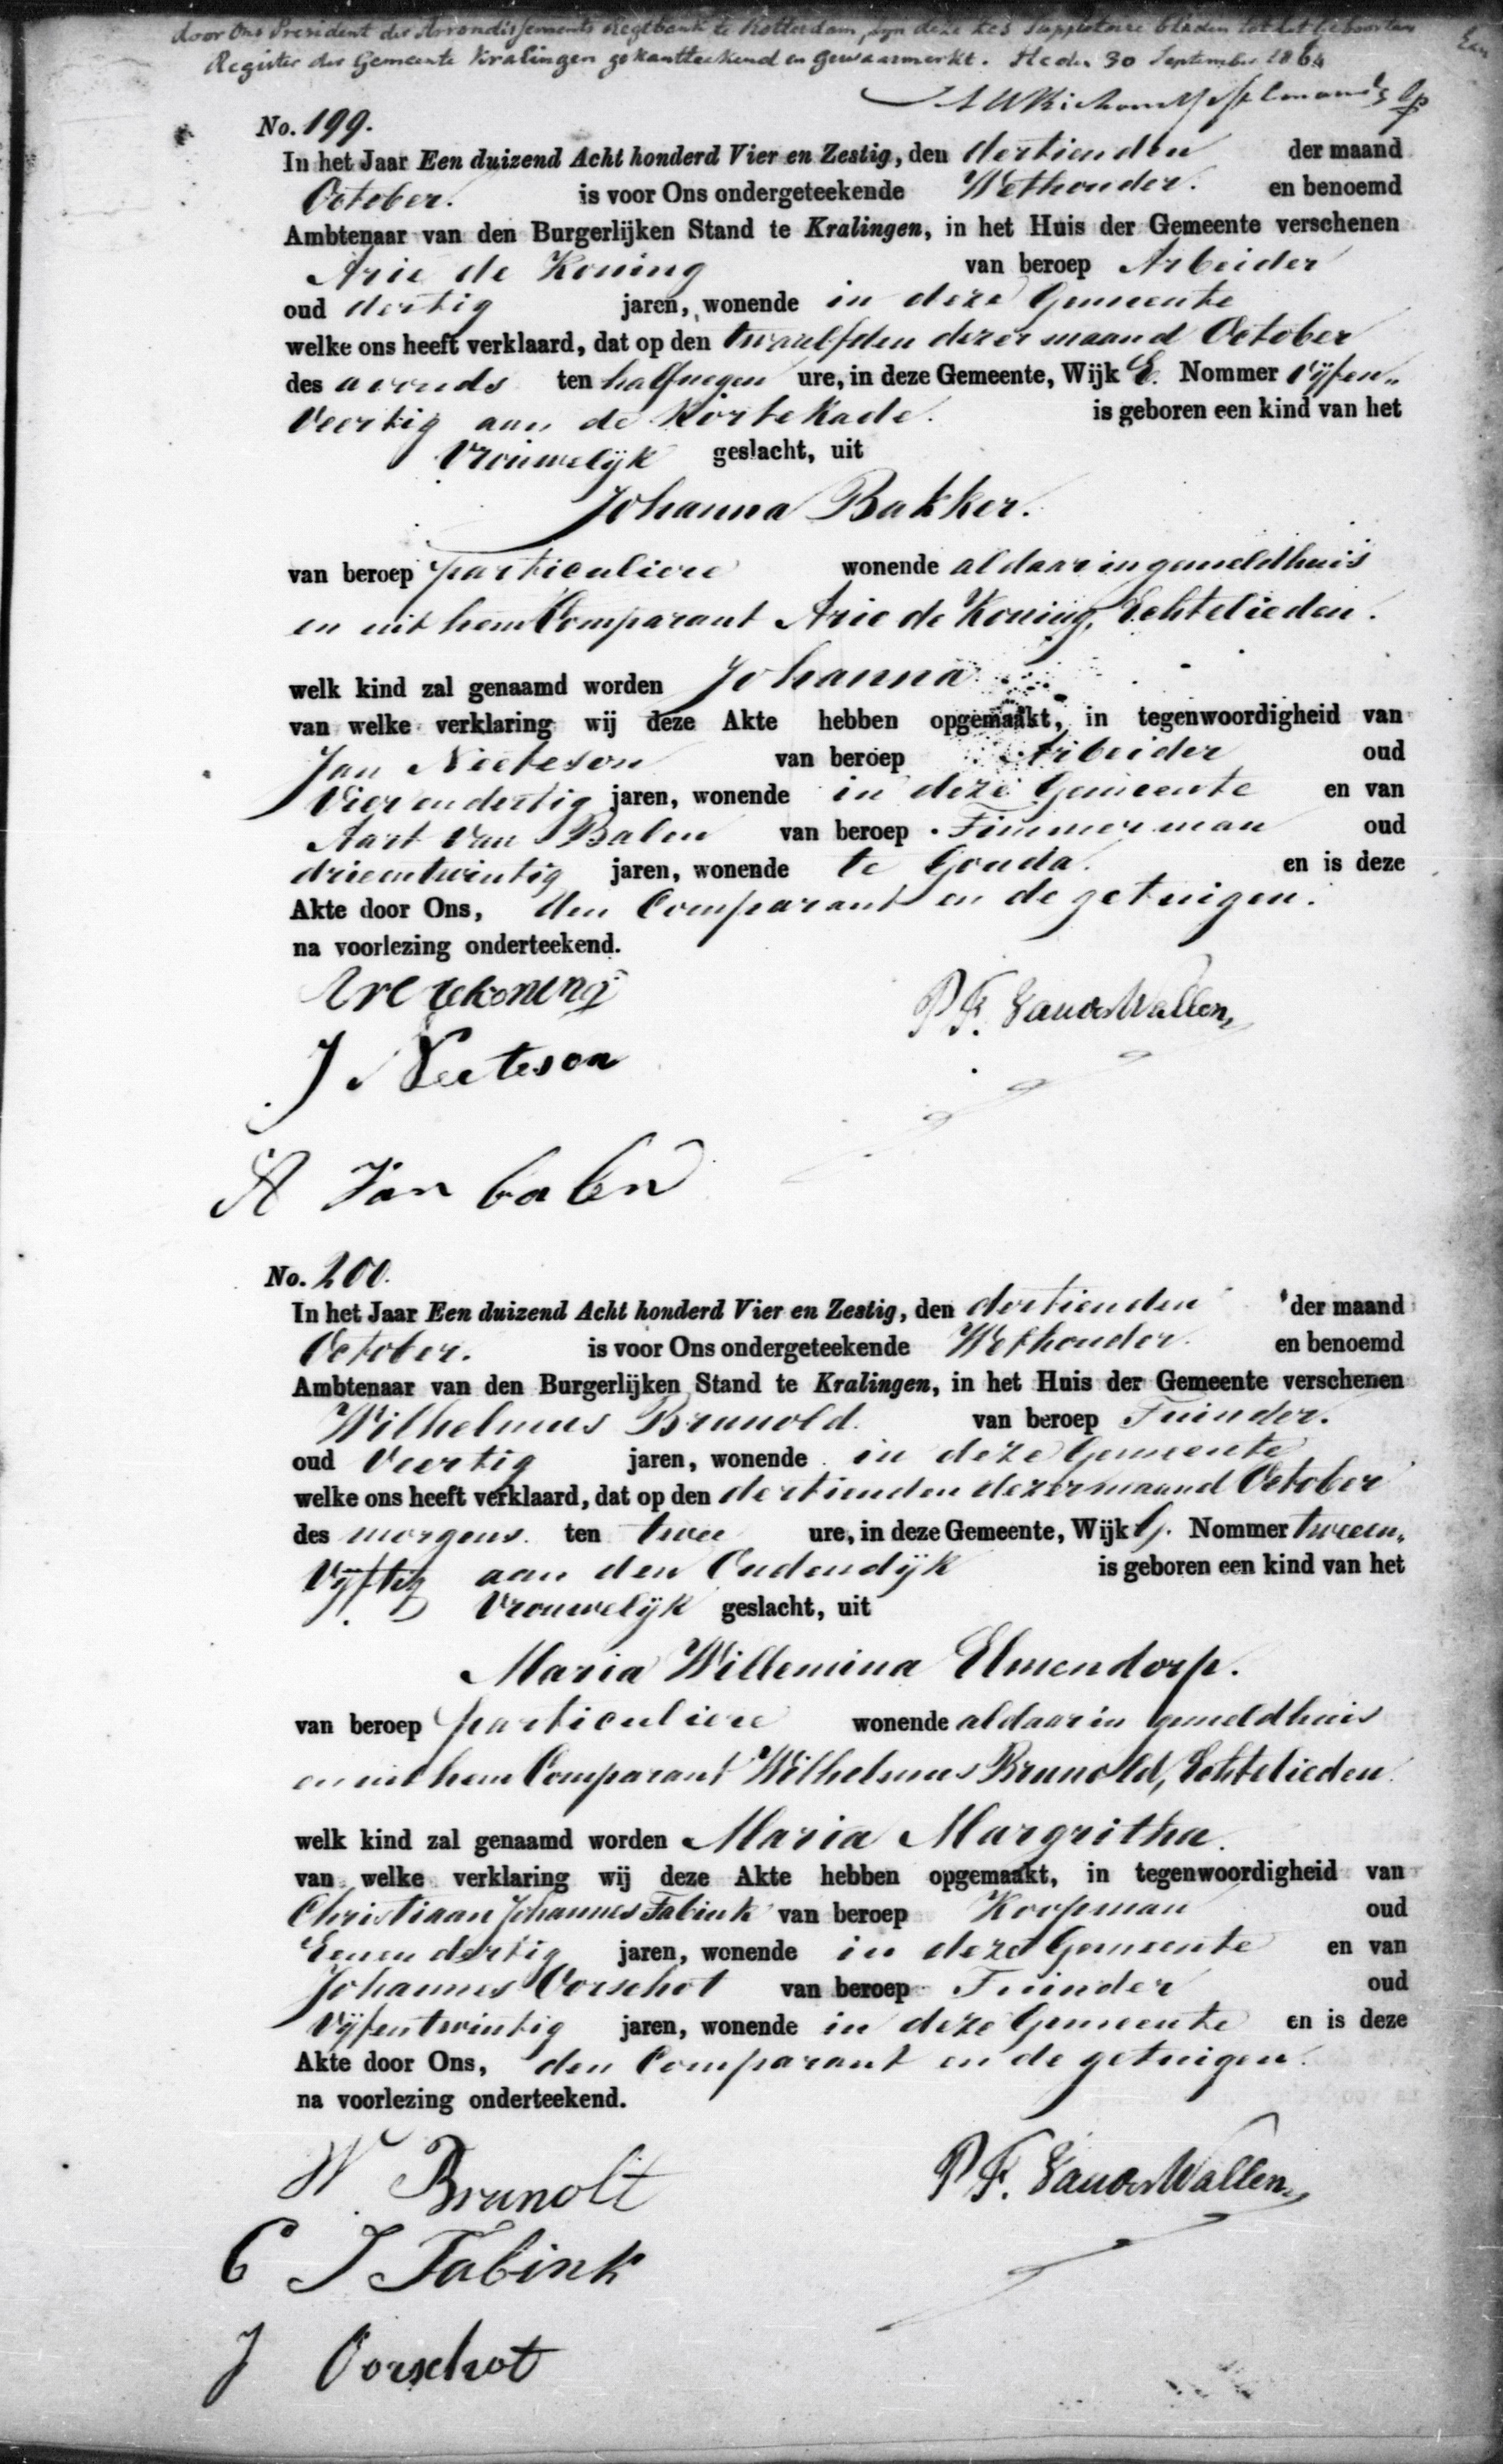 door Ons President der Arrondissements Regtbank te Rotterdam, zyn deze zes suppletoire bladen tot het Geboorten
Register der Gemeente Kralingen gekantteekend en gewaarmerkt. Heden 30 September 1864
No. 199.
In het Jaar Een duizend Acht honderd Vier en Zestig, den dertienden der maand
October. is voor Ons ondergeteekende Wethouder. en benoemd
Ambtenaar van den Burgerlijken Stand te Kralingen, in het Huis der Gemeente verschenen
Arie de Koning van beroep Arbeider
oud dertig jaren, wonende in deze Gemeente
welke ons heeft verklaard, dat op den twaalfden dezer maand October
des avonds ten halfnegen ure, in deze Gemeente, Wijk E. Nommer vijfen„
Veertig aan de Kortekade. is geboren een kind van het
Vrouwelijk geslacht, uit
Johanna Bakker.
van beroep particuliere wonende aldaar in gemeldhuis
en uit hem Comparant Arie de Koning, Echtelieden.
welk kind zal genaamd worden Johanna
van welke verklaring wij deze Akte hebben opgemaakt, in tegenwoordigheid van
Jan Neeteson van beroep Arbeider oud
Vierendertig jaren, wonende in deze Gemeente en van
Aart Van Balen van beroep Timmerman oud
drieentwintig jaren, wonende te Gouda. en is deze
Akte door Ons, den Comparant en de getuigen.
na voorlezing onderteekend.
Arie de koning
P F. Van der Wallen
J Neeteson
A Van balen
No. 200.
In het Jaar Een duizend Acht honderd Vier en Zestig, den dertienden der maand
October. is voor Ons ondergeteekende Wethouder. en benoemd
Ambtenaar van den Burgerlijken Stand te Kralingen, in het Huis der Gemeente verschenen
Wilhelmus Brunold. van beroep Tuinder.
oud Veertig jaren, wonende in deze Gemeente
welke ons heeft verklaard, dat op den dertienden dezer maand October
des morgens. ten twee ure, in deze Gemeente, Wijk G. Nommer tweeen„
Vijftig aan den Oudendijk is geboren een kind van het
Vrouwelijk geslacht, uit
Maria Willemina Elmendorp.
van beroep particuliere wonende aldaar in gemeldhuis
en uit hem Comparant Wilhelmus Brunold, Echtelieden.
welk kind zal genaamd worden Maria Margritha.
van welke verklaring wij deze Akte hebben opgemaakt, in tegenwoordigheid van
Christiaan Johannes Fabink van beroep Koopman oud
Eenendertig jaren, wonende in deze Gemeente en van
Johannes Oorschot van beroep Tuinder oud
Vijfentwintig jaren, wonende in deze Gemeente en is deze
Akte door Ons, den Comparant en de getuigen.
na voorlezing onderteekend.
W. Brunolt
P F. Van der Wallen
C J Fabink
J Oorschot